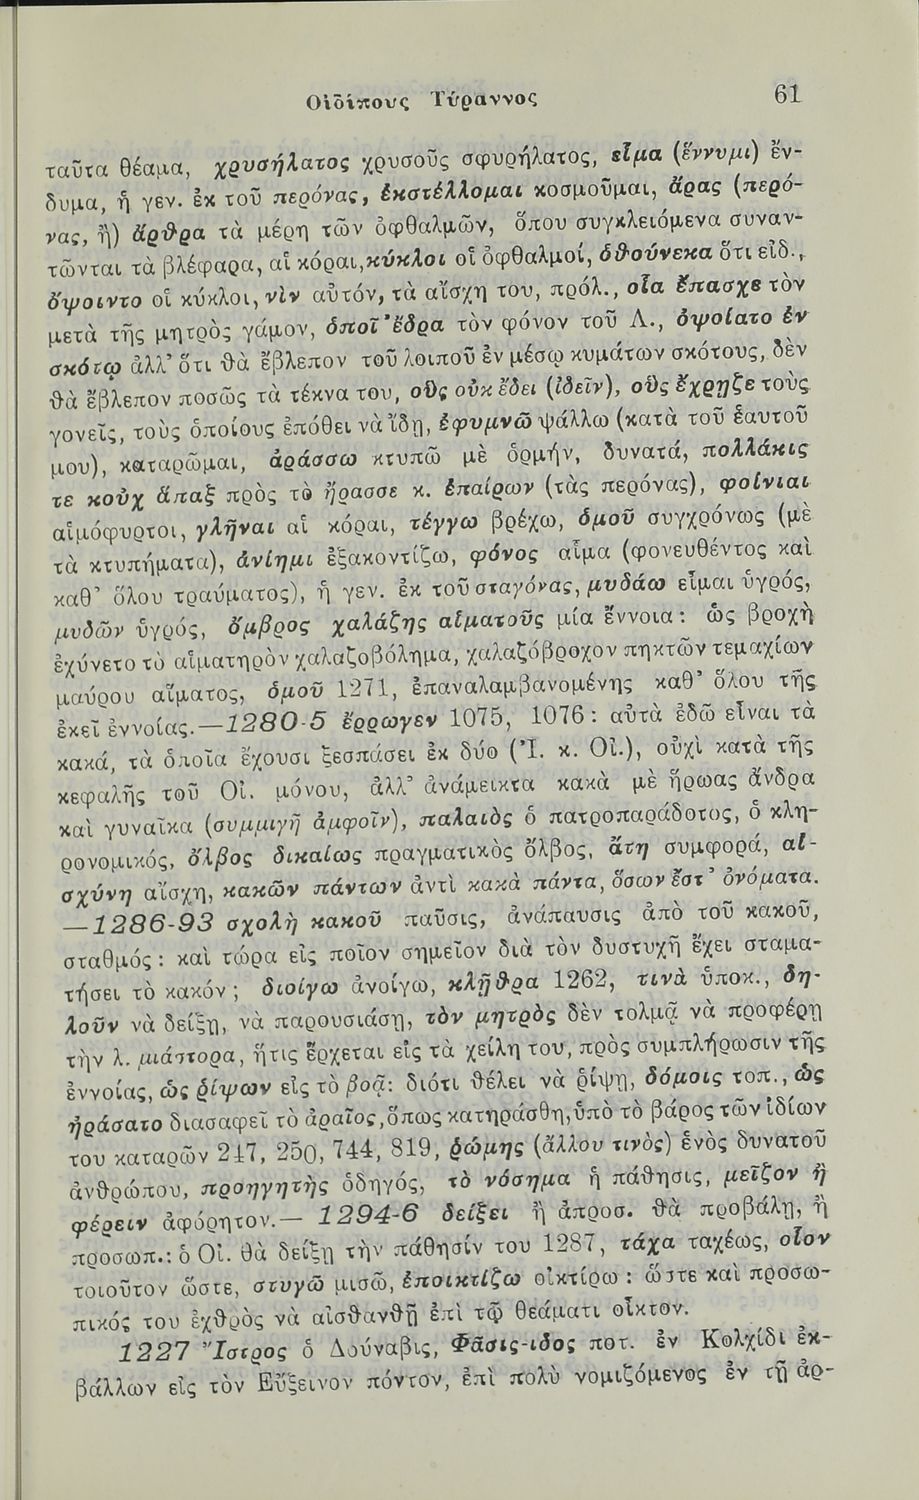 Οἰδίπους Τύραννος 61
ταῦτα θέαμα, χρυσήλατος χρυσοῦς σφυρήλατος, εἷμα (ἕννυμι) ἔν-
δυμα, ἡ γεν. ἐκ τοῦ περόνας, ἐκστέλλομαι κοσμοῦμαι, ἄρας (περό-
νας, ἢ) ἄρθρα τὰ μέρη τῶν ὀφθαλμῶν, ὅπου συγκλειόμενα συναν-
τῶνται τὰ βλέφαρα, αἱ κόραι, κύκλοι οἱ ὀφθαλμοί, ὁθούνεκα ὅτι εἰδ.,
ὄψοιντο οἱ κύκλοι, νὶν αὐτόν, τὰ αἴσχη του, πρόλ., οἷα ἔπασχε τὸν
μετὰ τῆς μητρὸς γάμον, ὁποῖ' ἔδρα τὸν φόνον τοῦ Λ., ὀψοίατο ἐν
σκότῳ ἀλλ' ὅτι θὰ ἔβλεπον τοῦ λοιποῦ ἐν μέσῳ κυμάτων σκότους, δὲν
θὰ ἔβλεπον ποσῶς τὰ τέκνα του, οὓς οὐκ ἔδει (ἰδεῖν), οὓς ἔχρῃζε τοὺς
γονεῖς, τοὺς ὁποίους ἐπόθει νὰ ἴδῃ, ἐφυμνῶ ψάλλω (κατὰ τοῦ ἑαυτοῦ
μου), καταρῶμαι, ἀράσσω κτυπῶ μὲ ὁρμήν, δυνατά, πολλάκις
τε κοὐχ ἅπαξ πρὸς τὸ ἤρασσε κ. ἐπαίρων (τὰς περόνας), φοίνιαι
αἱμόφυρτοι, γλῆναι αἱ κόραι, τέγγω βρέχω, ὁμοῦ συγχρόνως (μὲ
τὰ κτυπήματα), ἀνίημι ἐξακοντίζω, φόνος αἷμα (φονευθέντος καὶ
καθ' ὅλου τραύματος), ἡ γεν. ἐκ τοῦ σταγόνας, μυδάω εἶμαι ὑγρός,
μυδῶν ὑγρός, ὄμβρος χαλάζης αἱματοῦς μία ἔννοια: ὡς βροχὴ
ἐχύνετο τὸ αἱματηρὸν χαλαζοβόλημα, χαλαζόβροχον πηκτῶν τεμαχίων
μαύρου αἵματος, ὁμοῦ 1271, ἐπαναλαμβανομένης καθ' ὅλου τῆς
ἐκεῖ ἐννοίας.—1280-5 ἔρρωγεν 1075, 1076: αὐτὰ ἐδῶ εἶναι τὰ
κακά, τὰ ὁποῖα ἔχουσι ξεσπάσει ἐκ δύο (Ἰ. κ. Οἰ.), οὐχὶ κατὰ τῆς
κεφαλῆς τοῦ Οἰ. μόνου, ἀλλ' ἀνάμεικτα κακὰ μὲ ἥρωας ἄνδρα
καὶ γυναῖκα (συμμιγῆ ἀμφοῖν), παλαιὸς ὁ πατροπαράδοτος, ὁ κλη-
ρονομικός, ὄλβος δικαίως πραγματικὸς ὄλβος, ἄτη συμφορά, αἰ-
σχύνη αἴσχη, κακῶν πάντων ἀντὶ κακὰ πάντα, ὅσων ἔστ' ὀνόματα.
—1286-93 σχολὴ κακοῦ παῦσις, ἀνάπαυσις ἀπὸ τοῦ κακοῦ,
σταθμός: καὶ τώρα εἰς ποῖον σημεῖον διὰ τὸν δυστυχῆ ἔχει σταμα-
τήσει τὸ κακόν; διοίγω ἀνοίγω, κλῇθρα 1262, τινὰ ὑποκ., δη-
λοῦν νὰ δείξῃ, νὰ παρουσιάσῃ, τὸν μητρὸς δὲν τολμᾷ νὰ προφέρῃ
τὴν λ. μιάστορα, ἥτις ἔρχεται εἰς τὰ χείλη του, πρὸς συμπλήρωσιν τῆς
ἐννοίας, ὡς ῥίψων εἰς τὸ βοᾷ: διότι θέλει νὰ ῥίψῃ, δόμοις τοπ., ὡς
ἠράσατο διασαφεῖ τὸ ἀραῖος, ὅπως κατηράσθη, ὑπὸ τὸ βάρος τῶν ἰδίων
του καταρῶν 247, 250, 744, 819, ῥώμης (ἄλλου τινὸς) ἑνὸς δυνατοῦ
ἀνθρώπου, προηγητὴς ὁδηγός, τὸ νόσημα ἡ πάθησις, μεῖζον ἢ
φέρειν ἀφόρητον.— 1294-6 δείξει ἢ ἀπροσ. θὰ προβάλῃ, ἢ
προσωπ.: ὁ Οἰ. θὰ δείξῃ τὴν πάθησίν του 1287, τάχα ταχέως, οἷον
τοιοῦτον ὥστε, στυγῶ μισῶ, ἐποικτίζω οἰκτίρω: ὥστε καὶ προσω-
πικός του ἐχθρὸς νὰ αἰσθανθῇ ἐπὶ τῷ θεάματι οἶκτον.
1227 Ἴστρος ὁ Δούναβις, Φᾶσις-ιδος ποτ. ἐν Κολχίδι ἐκ-
βάλλων εἰς τὸν Εὔξεινον πόντον, ἐπὶ πολὺ νομιζόμενος ἐν τῇ ἀρ-